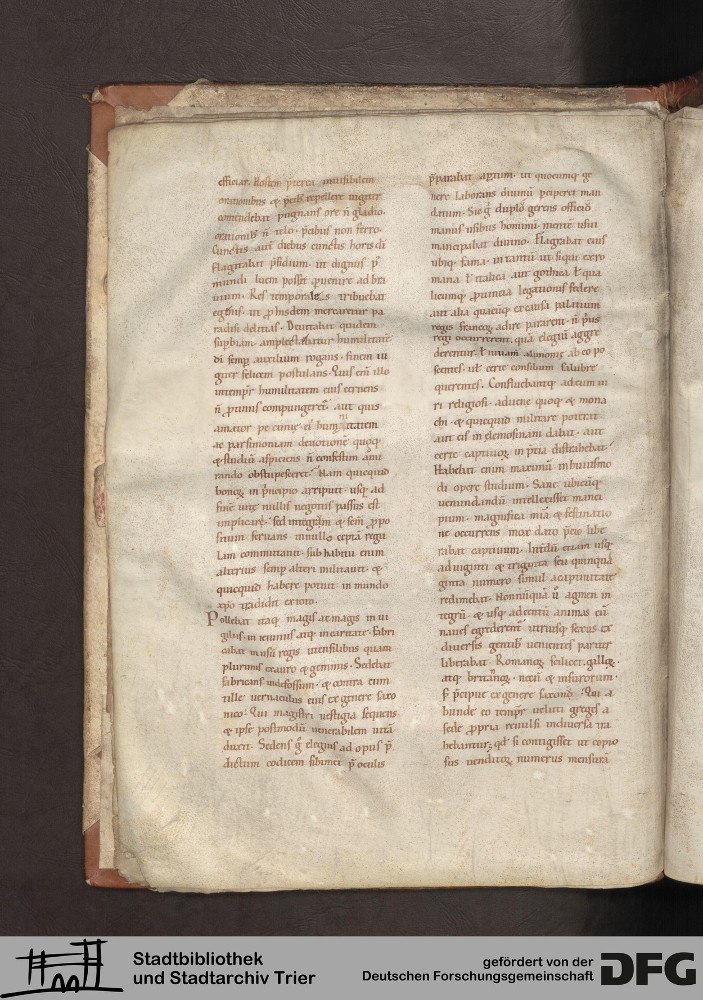 efficiar. Hostem p̄terea inuisibilem
orationibus & p̄cib; repellere iugiter
contendebat pugnans ore n̄ gladio.
orationib; n̄ telo. p̄cibus non ferro.
Cunctis aut̄ diebus cunctis horis d̄i
flagitabat p̄sidium. ut dignus p̄
mundi luem possit p̄uenire ad bra
uium. Res temporales tribuebat
egenis. ut p̄ hisdem mercaretur pa
radisi delitias. Deuitabat quidem
supbiam. amplectabatur humilitatē.
d̄i semp̄ auxilium rogans. finem iu
giter felicem postulans. Quis eni illo
intempr̄ humilitatem eius cernens
n̄ protinus compungeret̄. aut quis
amator pecunię. ei humilitatem
ac parsimoniam deuotionē quoq;
& studiū aspiciens n̄ confestim ami
rando obstupesceret. Nam quicquid
bonoꝝ in p̄ncipio arripuit. usq; ad
finē uitę nullis negotiis passus est
implicare. sed integrām & sem̄ p̄po
situm seruans in nullo cepta regu
lam commutauit. sub habitu enim
alterius semp̄ alteri militauit. &
quicquid habere potuit in mundo
xp̄o tradidit ex toto.
Pollebat itaq; magis ac magis in ui
giliis. in ieiuniis atq; in caritate. fabri
cabat in usū regis utensilibus quam
plurimis ex auro & gemmis. Sedebat
fabricans indefossum. & contra eum
tille uernaculus eius ex genere saxo
nico. Qui magistri uestigia sequens
& ipse postmodū uenerabilem uitā
duxit. Sedens g̊ elegius ad opus p̄
dictum codicem sibimet p̄ oculis
p̄parabat aptum. ut quocumq; ge
nere laborans diuinū p̄ciperet man
datum. Sicq̄ duplo gerens officio
manus usibus hominū. mentē usui
mancipabat diuino. Flagrabat eius
ubiq; fama. in tantū ut siqui ex ro
mana ł italica aut gothica ł qua
licumq; prouincia legationis federe
aut alia quacuq; ex causa palatium
regis francoꝝ adire pararent. n̄ p̄us
regi occurrerent. quā elegiū aggre
derentur. ł niuiam alimonię ab eo po
scentes. ut certe consilium salubre
querentes. Confluebantq; ad eum ui
ri religiosi. aduenę quoq; & mona
chi. & quicquid militare poterat
aut eis in elemosinam dabat. aut
certe captiuoꝝ in p̄tia distrahebat.
Habebat enim maximū in huiusmo
di opere studium. Sane ubicūq;
uenundandū intellexisset manci
pium. magnifica mīa & festinatio
ne occurrens mox dato p̄cio libe
rabat captiuum. Int̄dū etiam usq;
ad uiginti & triginta seu quinqua
ginta numero simul a captiuitate
redimebat. Nonnūquā ū agmen in
tegrū. & usq; ad centū animas cū
naues egrederent̄ utriusq; sexus ex
diuersis gentib; uenientes pariter
liberabat. Romanoꝝ scilicet. galloꝝ.
atq; britānoꝝ. necnī & maurorum.
s̄ p̄cipue ex genere saxonū. Qui a
bunde eo tempr̄ ueluti greges a
sede p̄pria reuulsi in diuersa tra
hebantur. qd̄ si contigisset ut copio
sus uenditoꝝ numerus mensurā
Stadtbibliothek
und Stadtarchiv Trier
gefördert von der
Deutschen Forschungsgemeinschaft
DFG